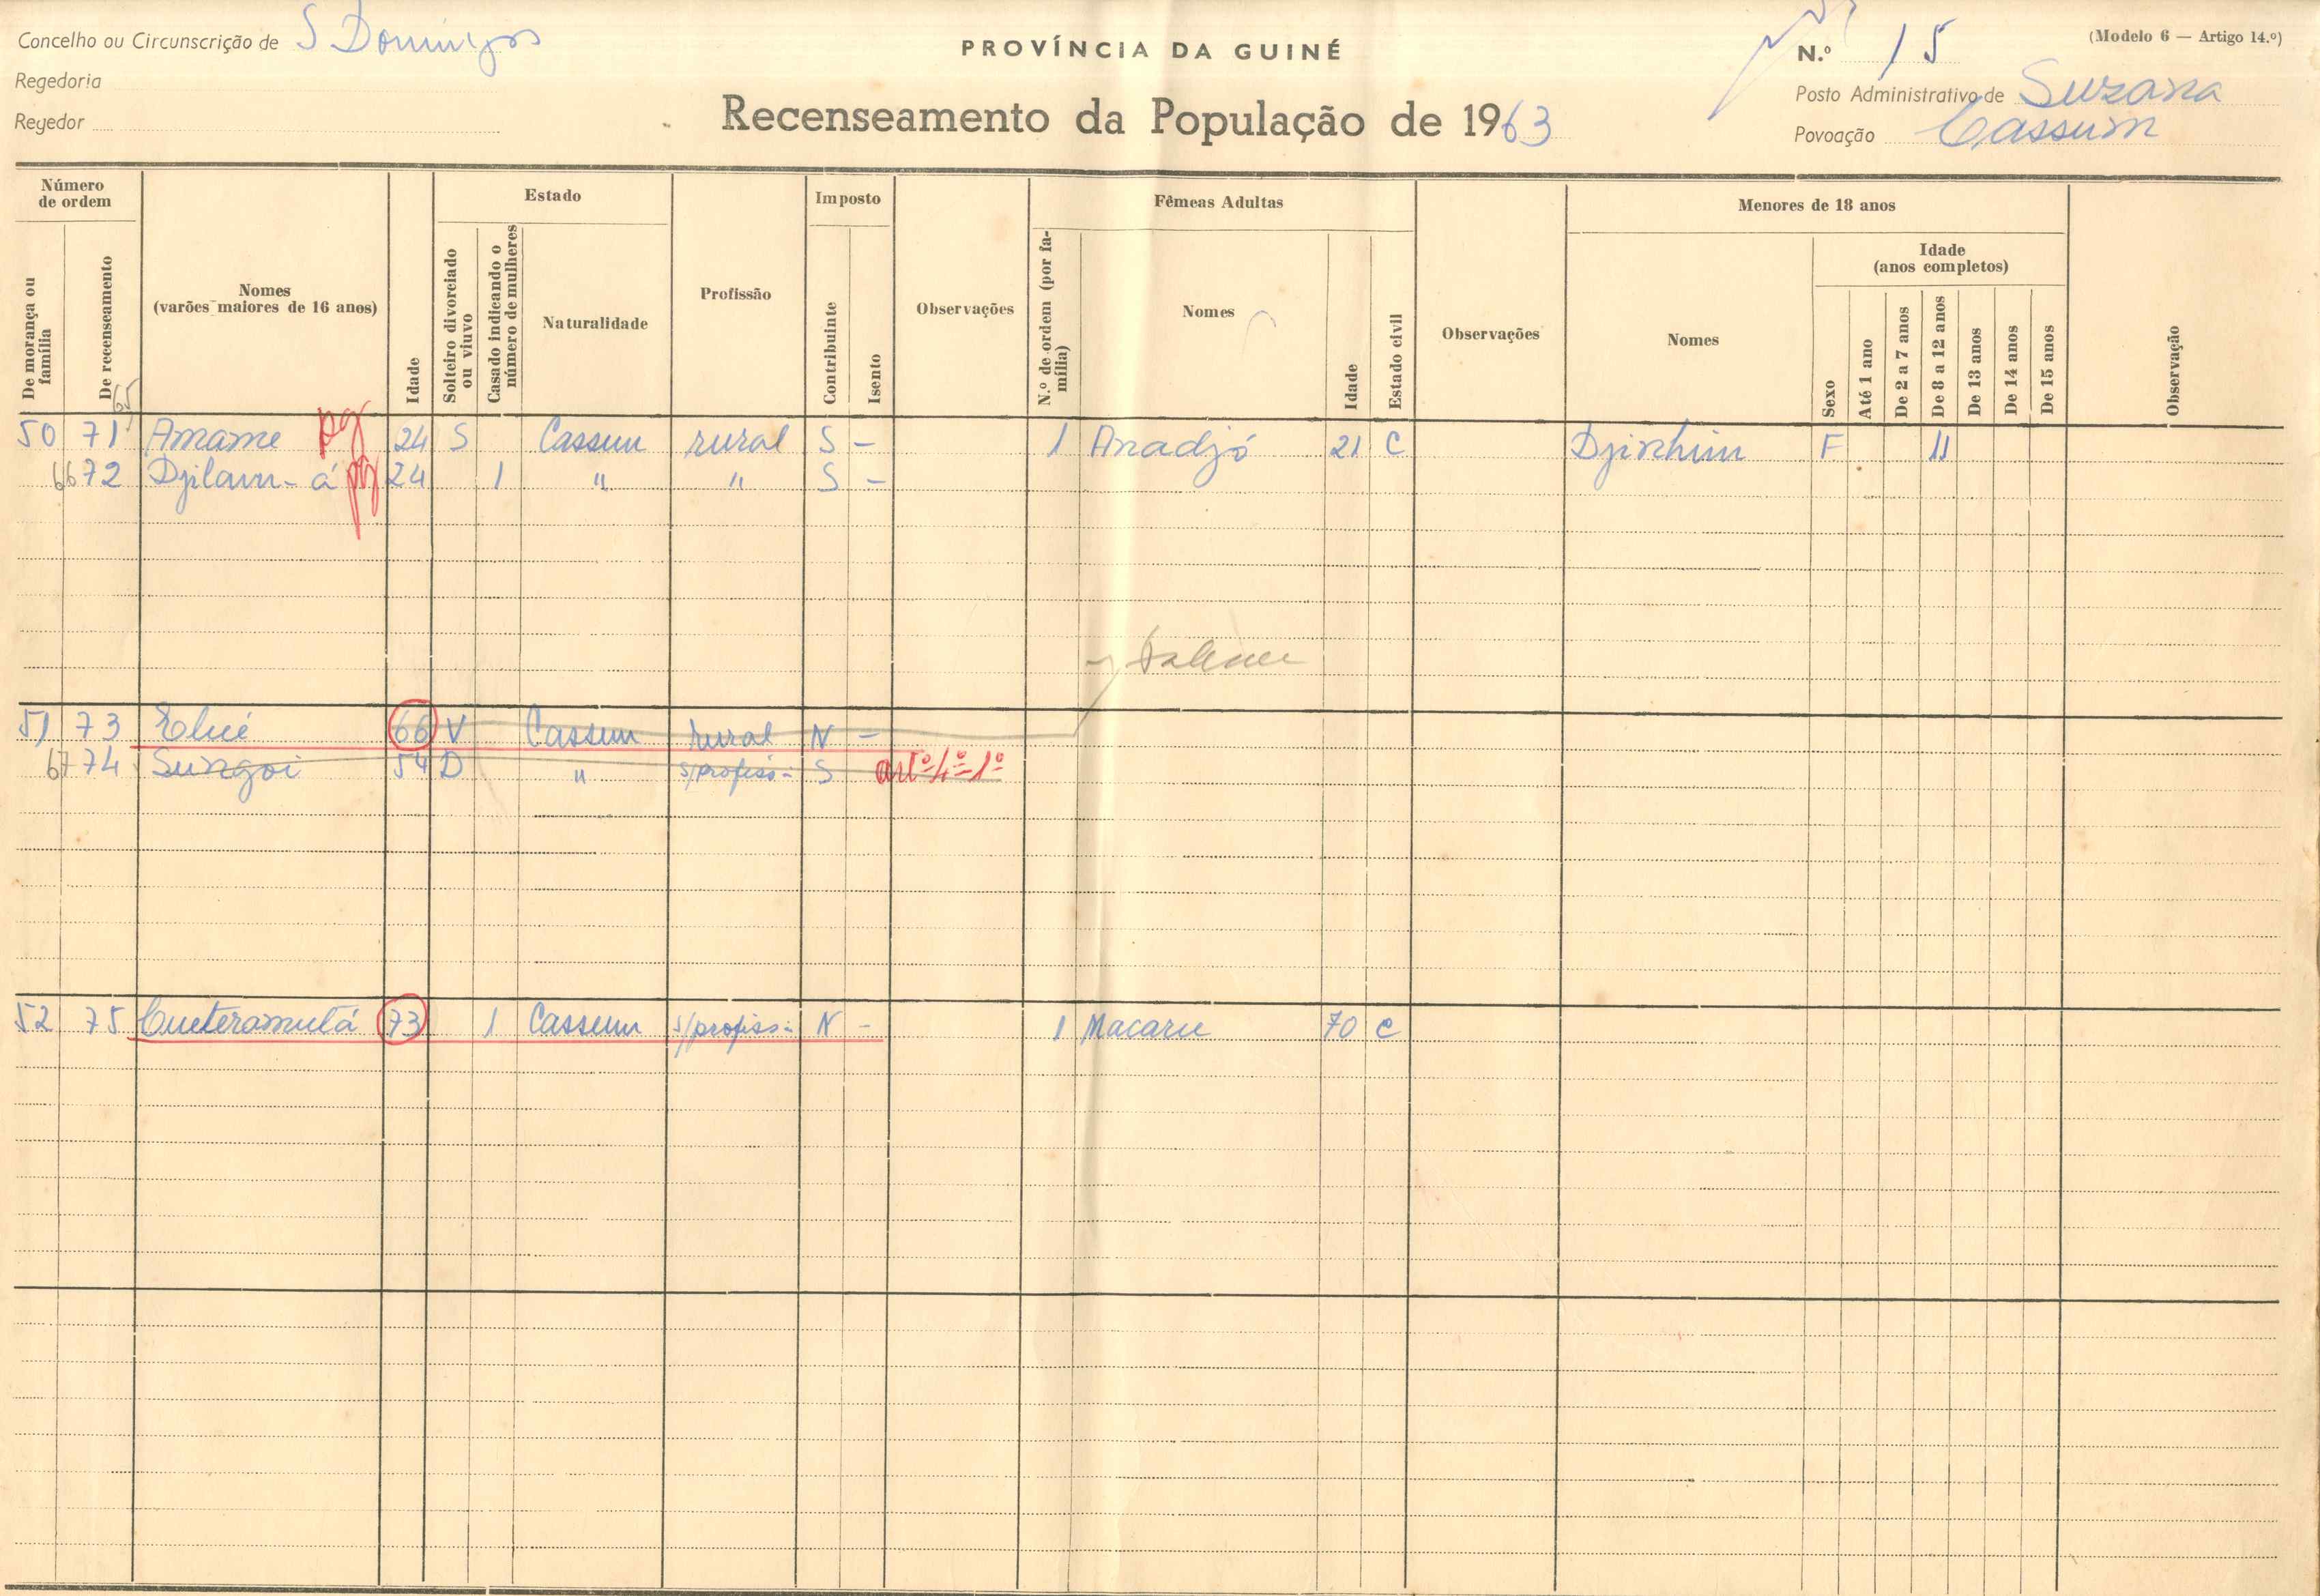 Concelho ou Circunscrição de S Domingos
Regedoria
Regedor
PROVÍNCIA DA GUINÉ
Recenseamento da População de 1963
N.º 15
(Modelo 6 — Artigo 14.º)
Posto Administrativo de Suzana
Povoação Cassum
Número de ordem
De morança ou família
De recenseamento
Nomes
(varões maiores de 16 anos)
Idade
Estado
Solteiro divorciado ou viuvo
Casado indicando o número de mulheres
Naturalidade
Profissão
Imposto
Contribuinte
Isento
Observações
Fêmeas Adultas
N.º de ordem (por família)
Nomes
Idade
Estado civil
Observações
Menores de 18 anos
Nomes
Idade
(anos completos)
Sexo
Até 1 ano
De 2 a 7 anos
De 8 a 12 anos
De 13 anos
De 14 anos
De 15 anos
Observação
65
50 71 Amame pg 24 S Cassum rural S - 1 Anadjó 21 C Djinhim F 11
66 72 Djilam-á pg 24 1 " " S -
51 73 Elué 66 V Cassum rural N -
67 74 Sungoi 54 D " s/profiss: S artº 4º 1º
52 75 Cueteramutá 73 1 Cassum s/profiss: N - 1 Macaru 70 C